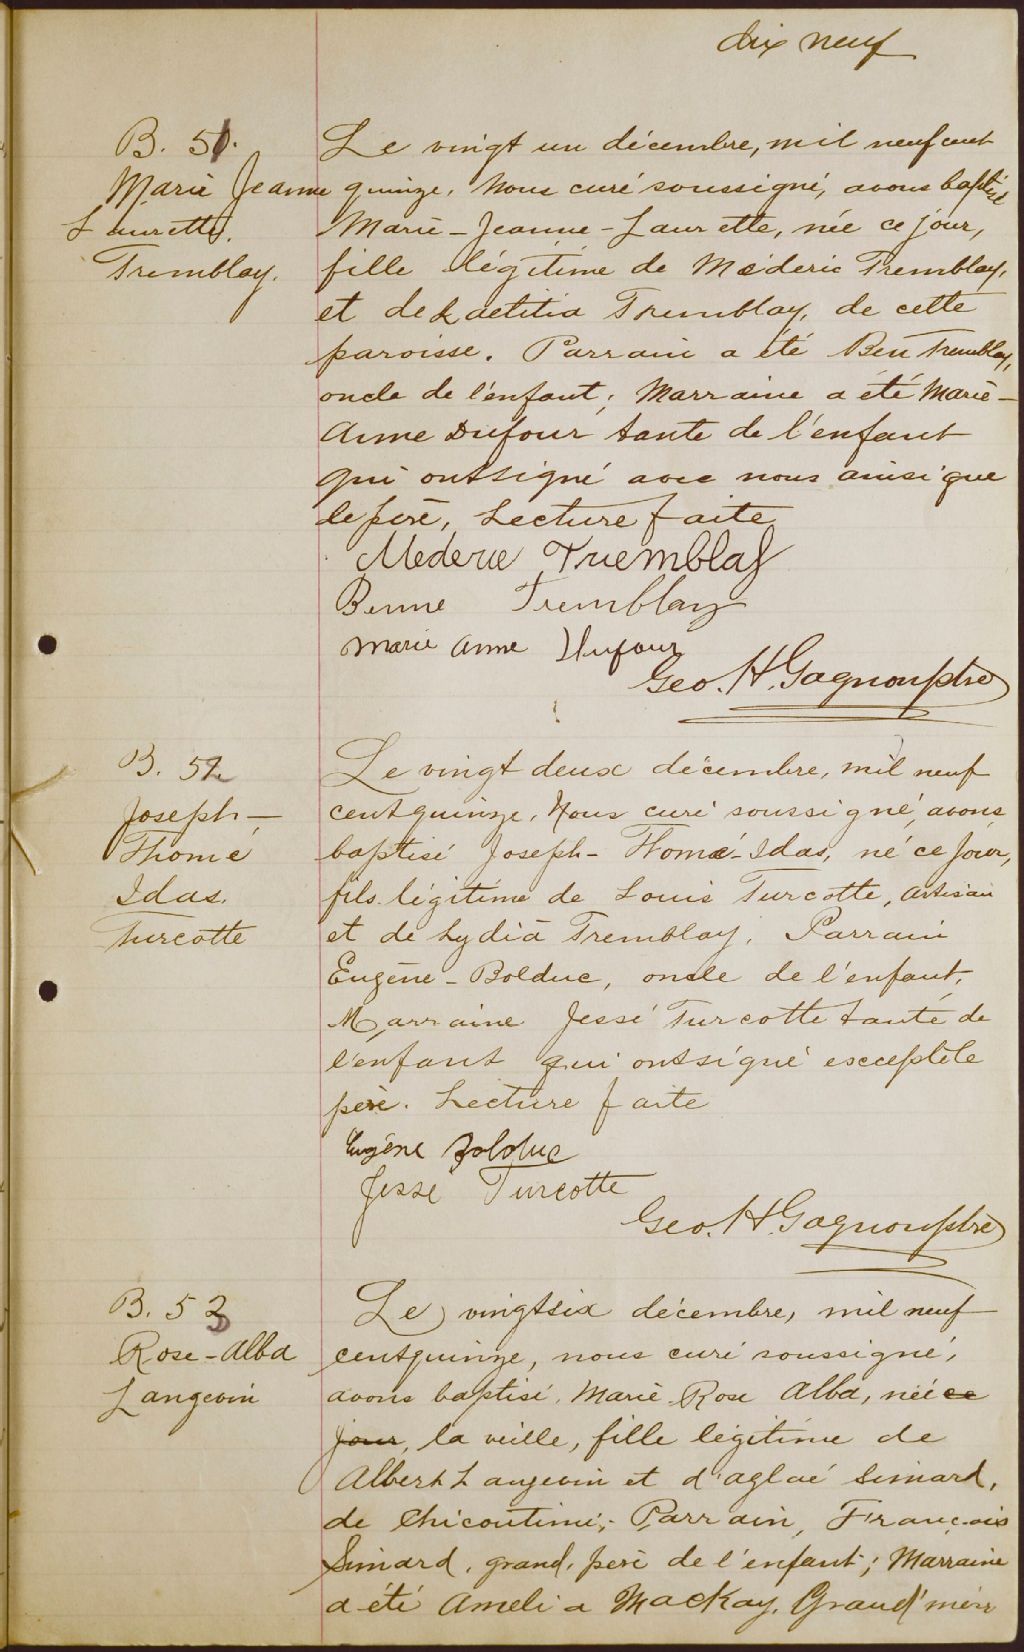 dix neuf
B. 51.
Marie Jeanne
Laurette.
Tremblay.
Le vingt un décembre, mil neuf cent
quinze. Nous curé soussigné, avons baptisé
Marie-Jeanne-Laurette, née ce jour,
fille légitime de Médéric Tremblay,
et de Laetitia Tremblay, de cette
paroisse. Parrain a été Ben Tremblay,
oncle de l'enfant; Marraine a été Marie-
Anne Dufour tante de l'enfant
qui ont signé avec nous ainsi que
le père, Lecture faite
Mederic Tremblay
Benne Tremblay
Marie Anne Dufour
Geo. H. Gagnon ptre
B. 52
Joseph-
Thomé
Idas.
Turcotte
Le vingt deux décembre, mil neuf
cent quinze. Nous curé soussigné, avons
baptisé Joseph-Thomé-Idas, né ce jour,
fils légitime de Louis Turcotte, artisan
et de Lydia Tremblay. Parrain
Eugène-Bolduc, oncle de l'enfant,
Marraine Jessé Turcotte tante de
l'enfant qui ont signé excepté le
père. Lecture faite
Eugène Bolduc
Jessé Turcotte
Geo. H. Gagnon ptre
B. 53
Rose-Alba
Langevin
Le vingt six décembre, mil neuf
cent quinze, nous curé soussigné,
avons baptisé Marie Rose Alba, née ce
jour, la veille, fille légitime de
Albert Langevin et d'Aglaé Simard,
de Chicoutimi; Parrain, François
Simard, grand, père de l'enfant; Marraine
a été Amelia Mackay, Grand'mère